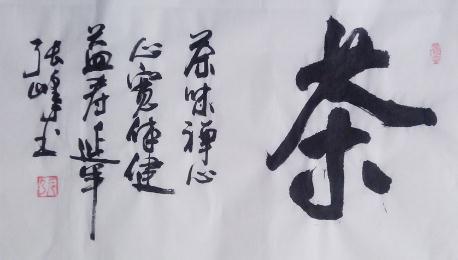 茶
茶味禅心
心宽体健
益寿延年
张峰书